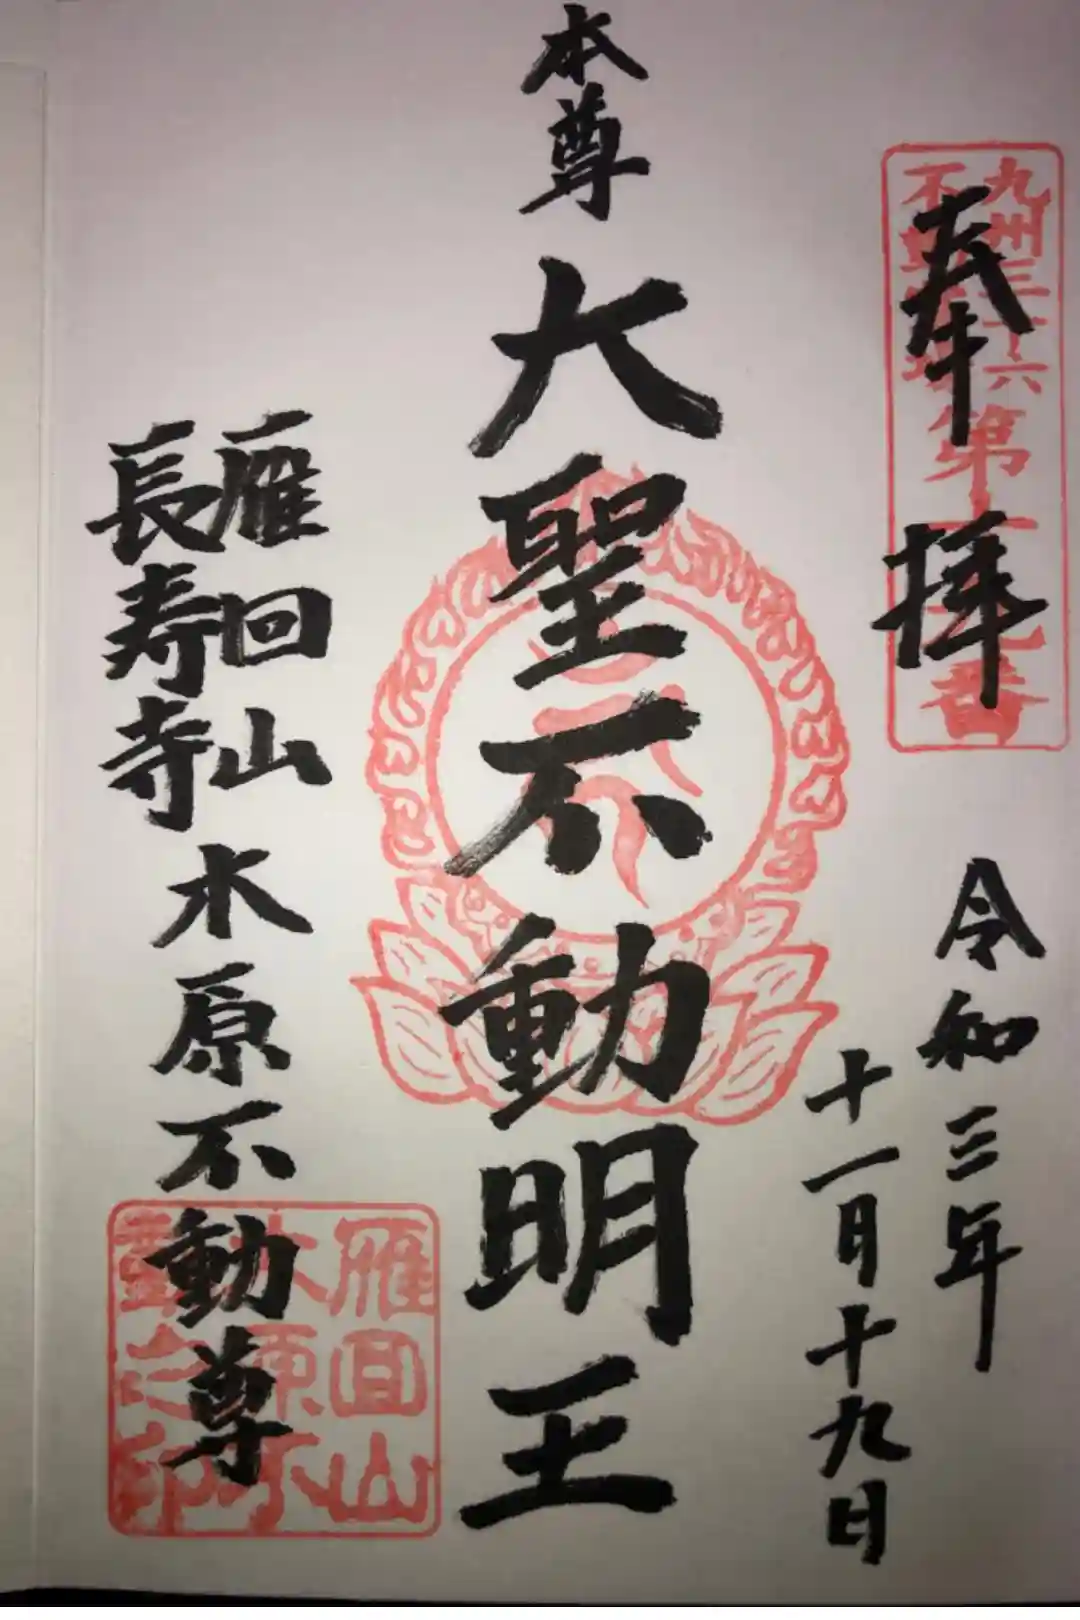 奉拝
九州三十六
不動霊場
第十九番
令和三年
十一月十九日
本尊
大聖不動明王
雁回山
長寿寺
木原不動尊
雁回山
木原不
動之印